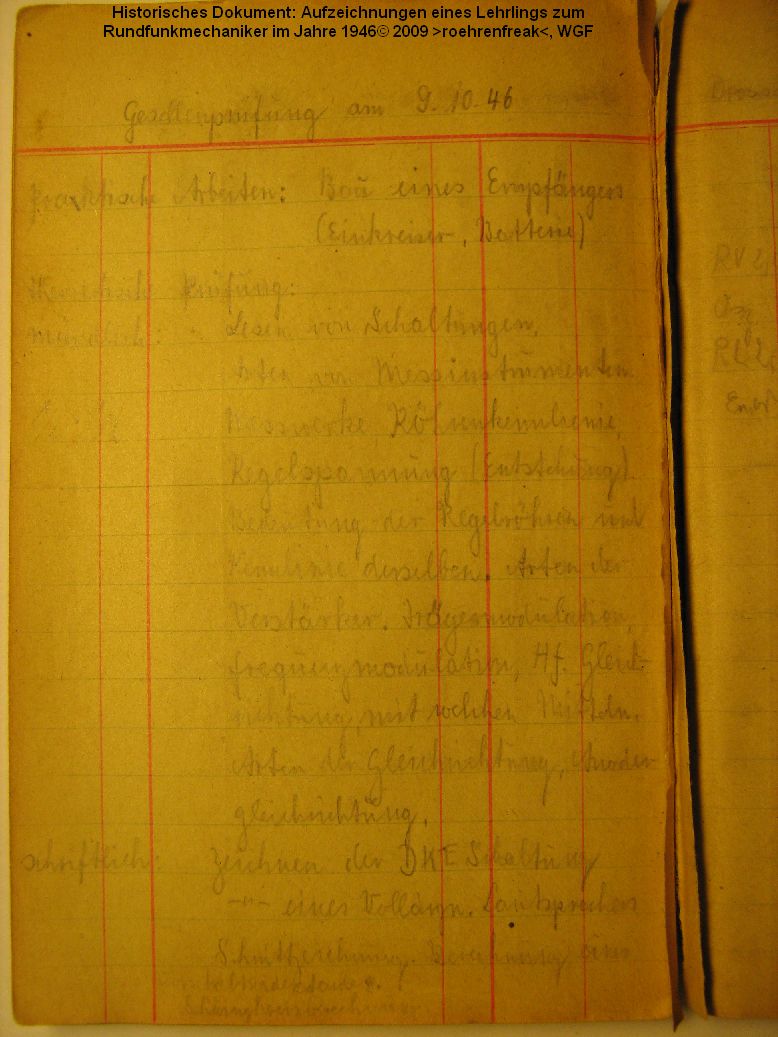 Historisches Dokument: Aufzeichnungen eines Lehrlings zum
Rundfunkmechaniker im Jahre 1946© 2009 >roehrenfreak<, WGF
Gesellenprüfung am 9.10.46
Praktische Arbeiten: Bau eines Empfängers
(Einkreiser-, Batterie)
Theoretische Prüfung:
mündlich: Lesen von Schaltungen,
Arten von Messinstrumenten
Messwerke, Röhrenkennlinie,
Regelspannung (Entstehung)
Bedeutung der Regelröhren und
Kennlinie derselben. Arten der
Verstärker. Trägermodulation,
frequenzmodulation, Hf. Gleich-
richtung, mit welchen Mitteln.
Arten der Gleichrichtung, Anoden-
gleichrichtung.
schriftlich: Zeichnen der DKE Schaltung
-"- eines Lautsprechers
Berechnung eines
RV
RL